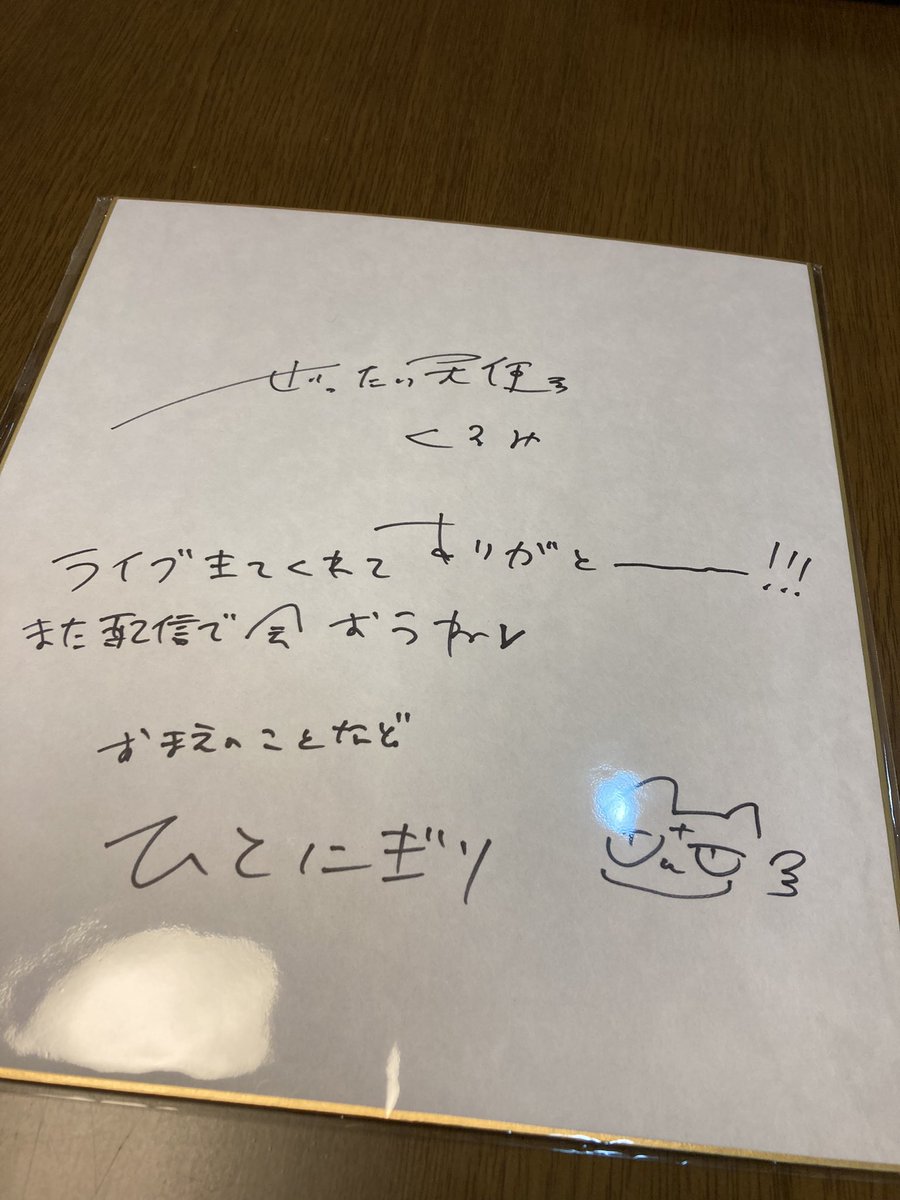 ぜったい天使
くるみ
ライブ生てくれてありがとー!!!
また配信で会おうね
おまえのことなど
ひとにぎり